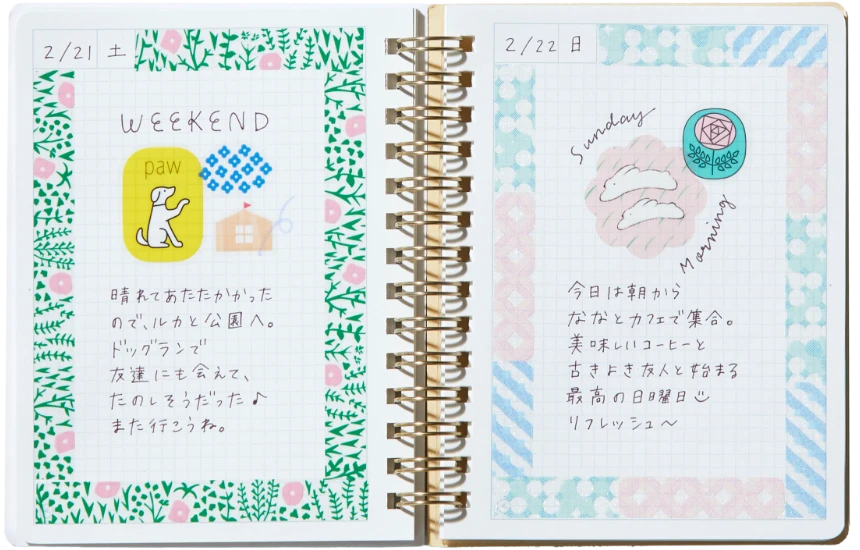 2/21 土
WEEKEND
paw
晴れてあたたかかった
ので、ルカと公園へ。
ドッグランで
友達にも会えて、
たのしそうだった♪
また行こうね。
2/22 日
Sunday
Morning
今日は朝から
ななとカフェで集合。
美味しいコーヒーと
古きよき友人と始まる
最高の日曜日☺
リフレッシュ〜